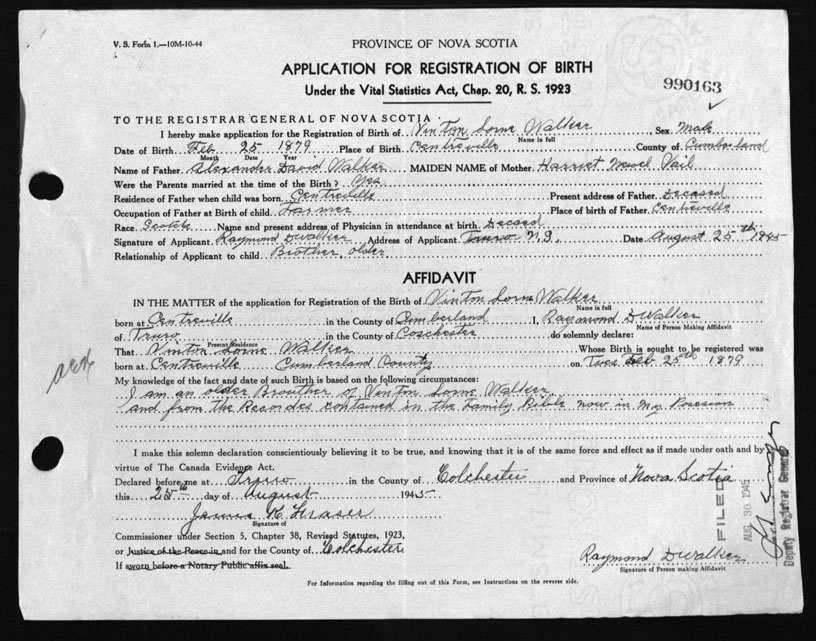 V. S. Form 1.—10M-10-44
PROVINCE OF NOVA SCOTIA
APPLICATION FOR REGISTRATION OF BIRTH
Under the Vital Statistics Act, Chap. 20, R. S. 1923
990163
TO THE REGISTRAR GENERAL OF NOVA SCOTIA
I hereby make application for the Registration of Birth of Vinton Lorne Walker Sex Male
Name in full
Date of Birth Feb 25 1879 Place of Birth Centreville County of Cumberland
Month Date Year
Name of Father Alexander David Walker MAIDEN NAME of Mother Harriet Newel Vail
Were the Parents married at the time of the Birth? Yes
Residence of Father when child was born Centreville Present address of Father Deceased
Occupation of Father at Birth of child Farmer Place of birth of Father Centreville
Race Scotch Name and present address of Physician in attendance at birth Decased
Signature of Applicant Raymond D Walker Address of Applicant Truro N.S. Date August 25th 1945
Relationship of Applicant to child Brother, older
AFFIDAVIT
IN THE MATTER of the application for Registration of the Birth of Vinton Lorne Walker
Name in full
born at Centreville in the County of Cumberland I, Raymond D Walker
Name of Person Making Affidavit
of Truro in the County of Coschester do solemnly declare:
Present Residence
That Vinton Lorne Walker Whose Birth is sought to be registered was
born at Centreville Cumberland County on Tues Feb 25th 1879
My knowledge of the fact and date of such Birth is based on the following circumstances:
I am an older Brouther of Vinton Lorne Walker
and from the Resordes contained in the Family Bible now in my Posesion
I make this solemn declaration conscientiously believing it to be true, and knowing that it is of the same force and effect as if made under oath and by
virtue of The Canada Evidence Act.
Declared before me at Truro in the County of Colchester and Province of Nova Scotia
this 25th day of August 1945
James K Fraser
Signature of
Commissioner under Section 5, Chapter 38, Revised Statutes, 1923,
or Justice of the Peace in and for the County of Colchester
If sworn before a Notary Public affix seal.
Raymond D Walker
Signature of Person making Affidavit
For Information regarding the filling out of this Form, see Instructions on the reverse side.
FILED
AUG 30 1945
Deputy Registrar General